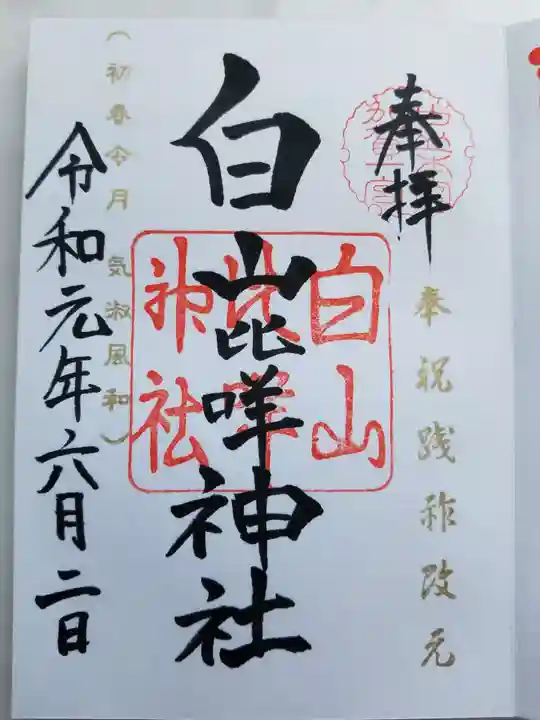 奉拝
奉祝践祚改元
白山比咩神社
白山
比咩
神社
(初春令月 気淑風和)
令和元年六月二日